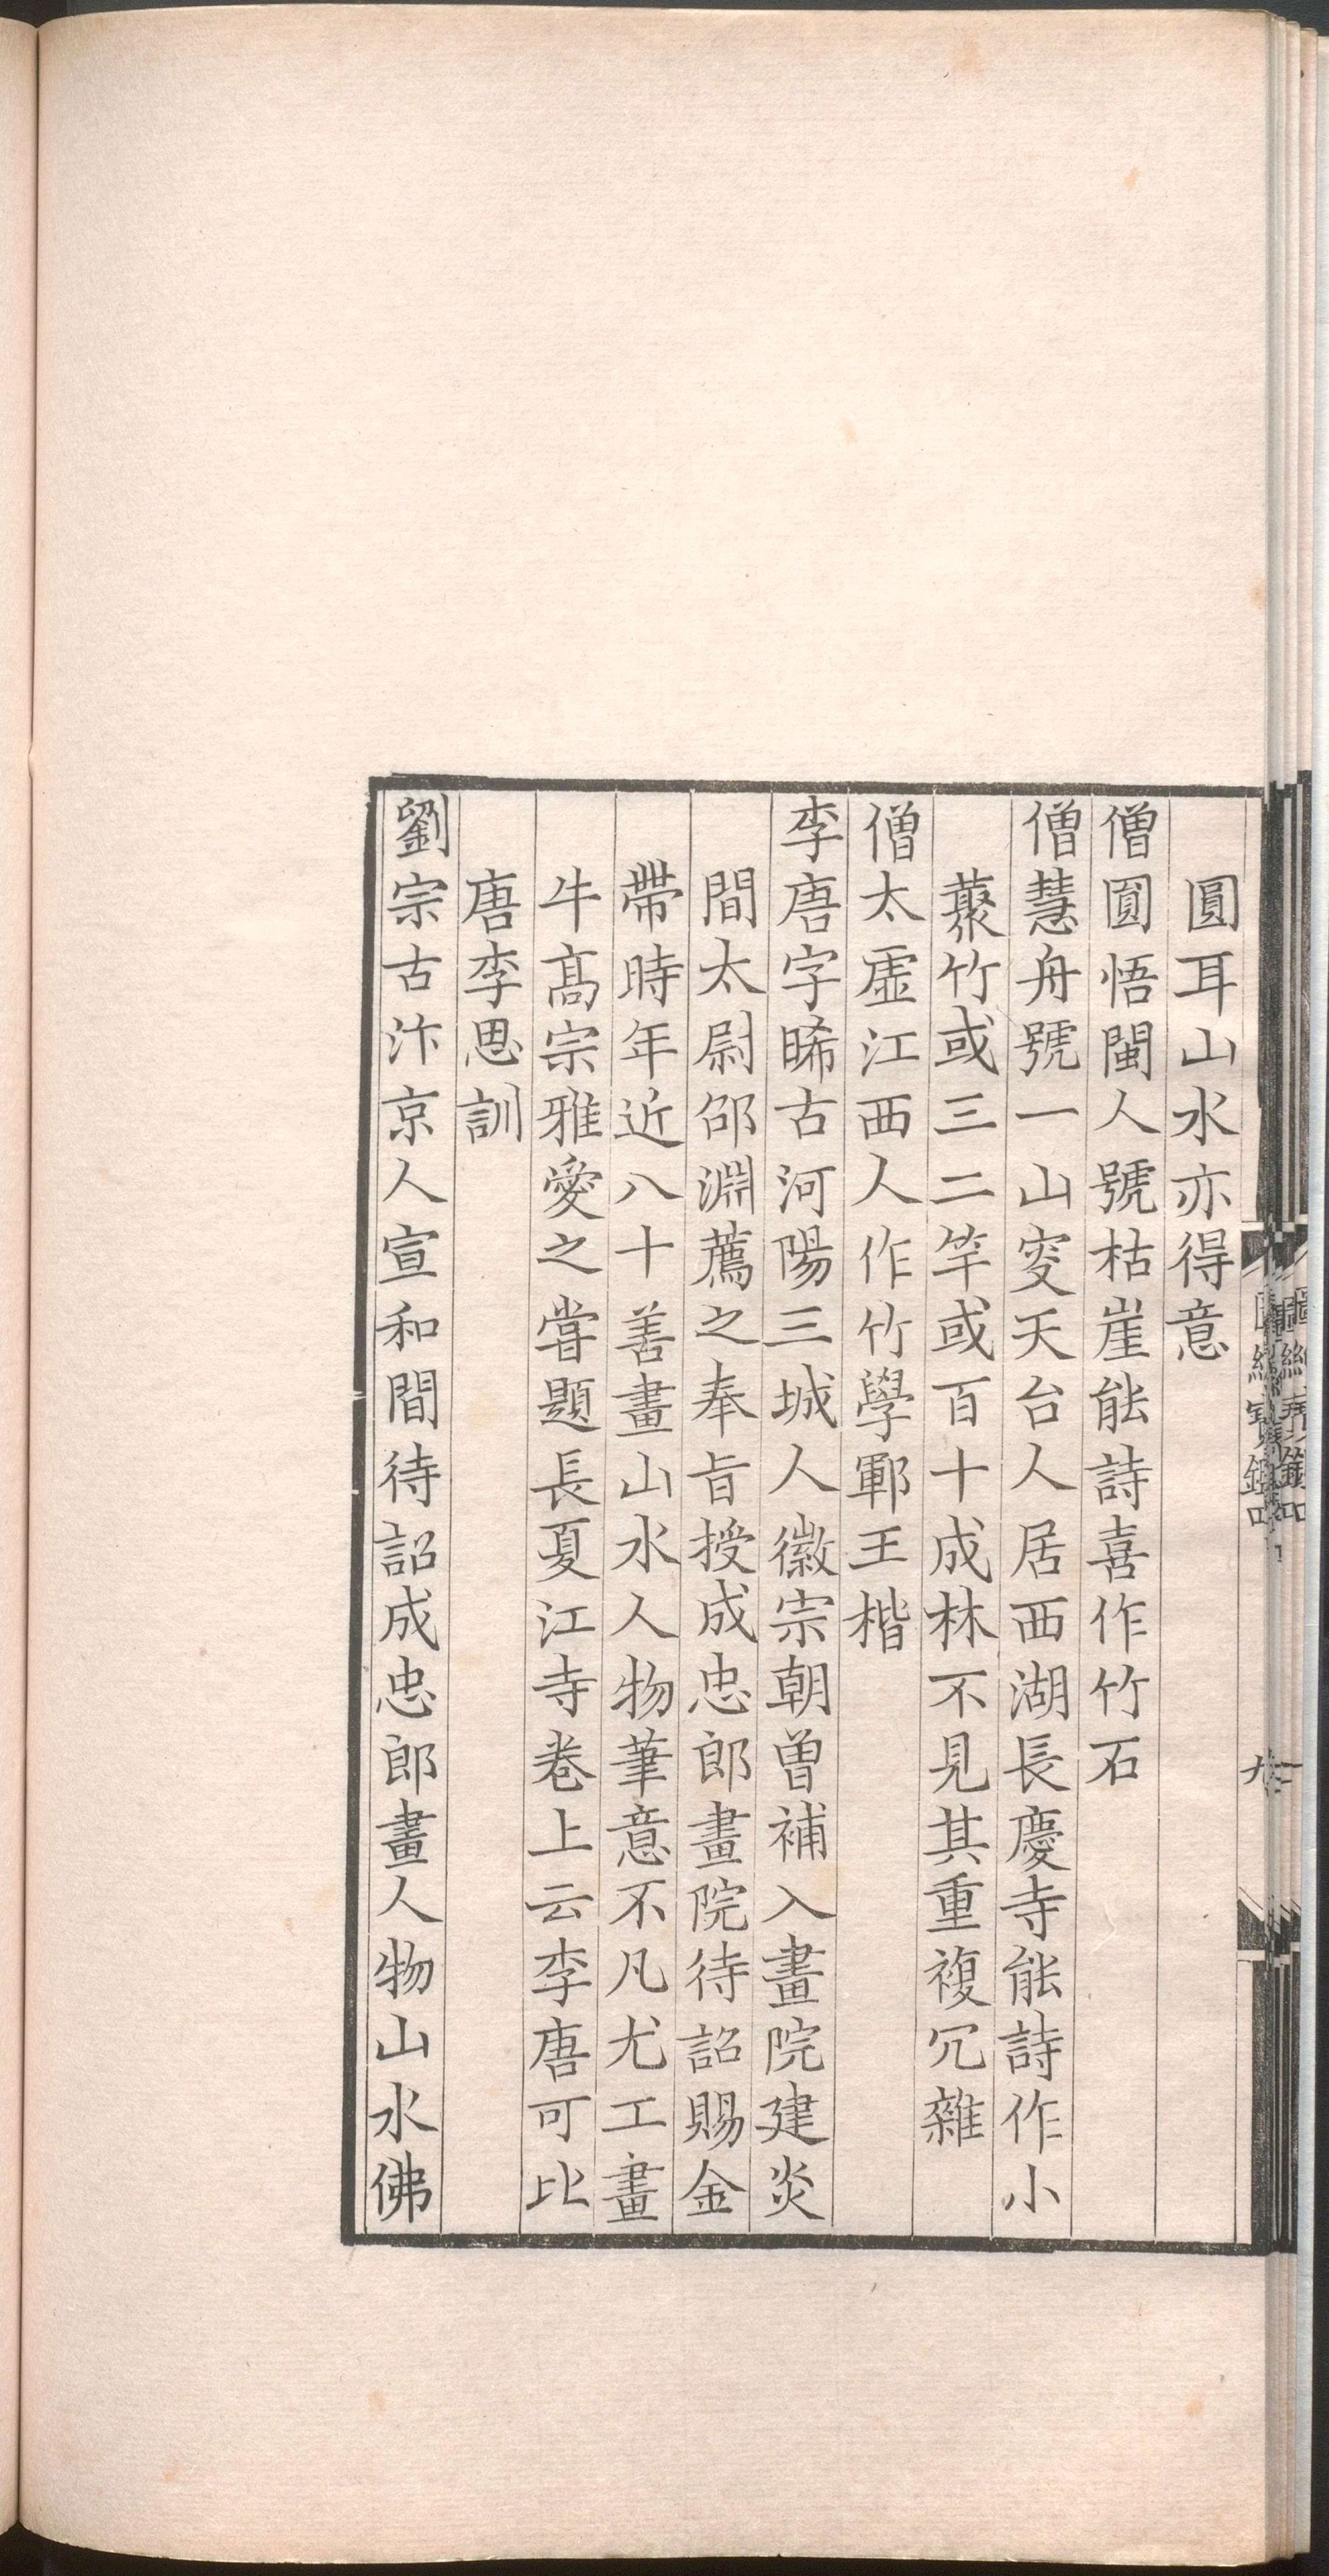 圓耳山水亦得意
僧圓悟閩人號枯崖能詩喜作竹石
僧慧舟號一山交天台人居西湖長慶寺能詩作小
藂竹或三二竿或百十成林不見其重複冗雜
僧太虛江西人作竹學鄆王楷
李唐字晞古河陽三城人徽宗朝曾補入畫院建炎
間太尉邵淵薦之奉旨授成忠郎畫院待詔賜金
帶時年近八十善畫山水人物筆意不凡尤工畫
牛高宗雅愛之嘗題長夏江寺卷上云李唐可比
唐李思訓
劉宗古汴京人宣和間待詔成忠郎畫人物山水佛